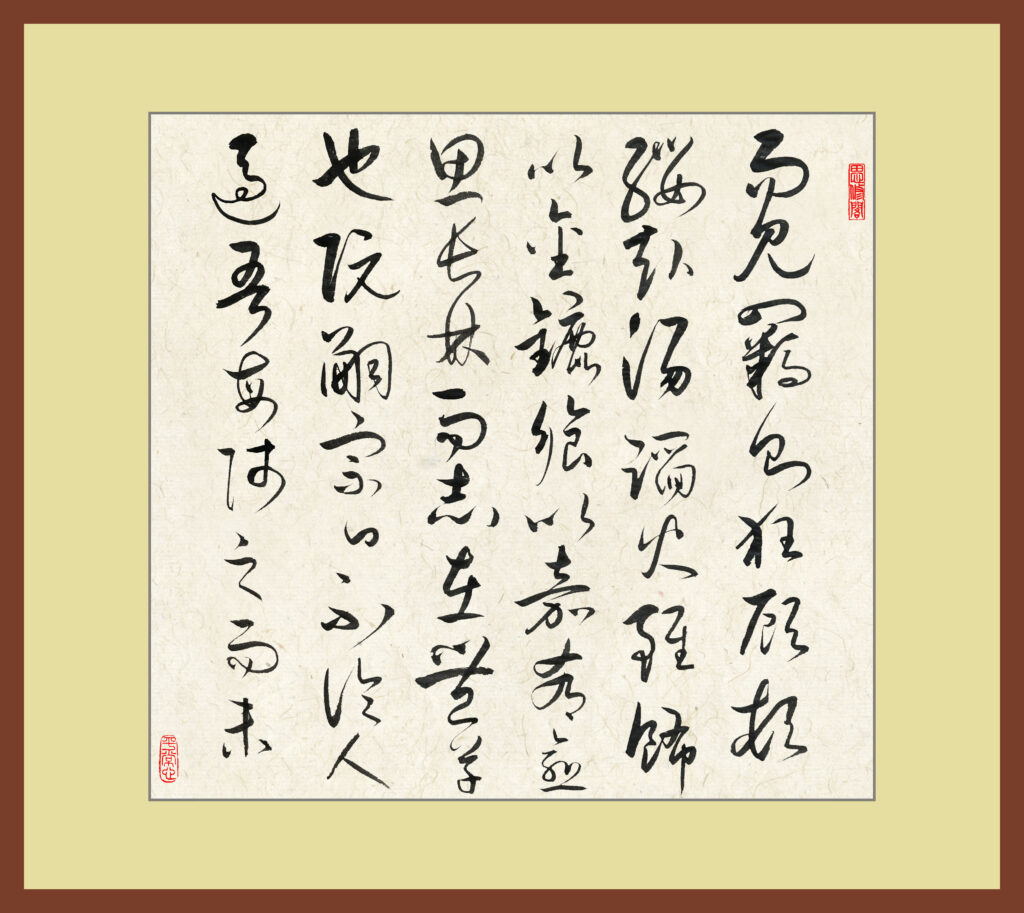 思修閣
而見羈則狂顧頓
纓赴湯蹈火雖飾
以金鑣饗以嘉肴愈
思長林而志在豐草
也阮嗣宗口不論人
過吾每師之而未
平常心